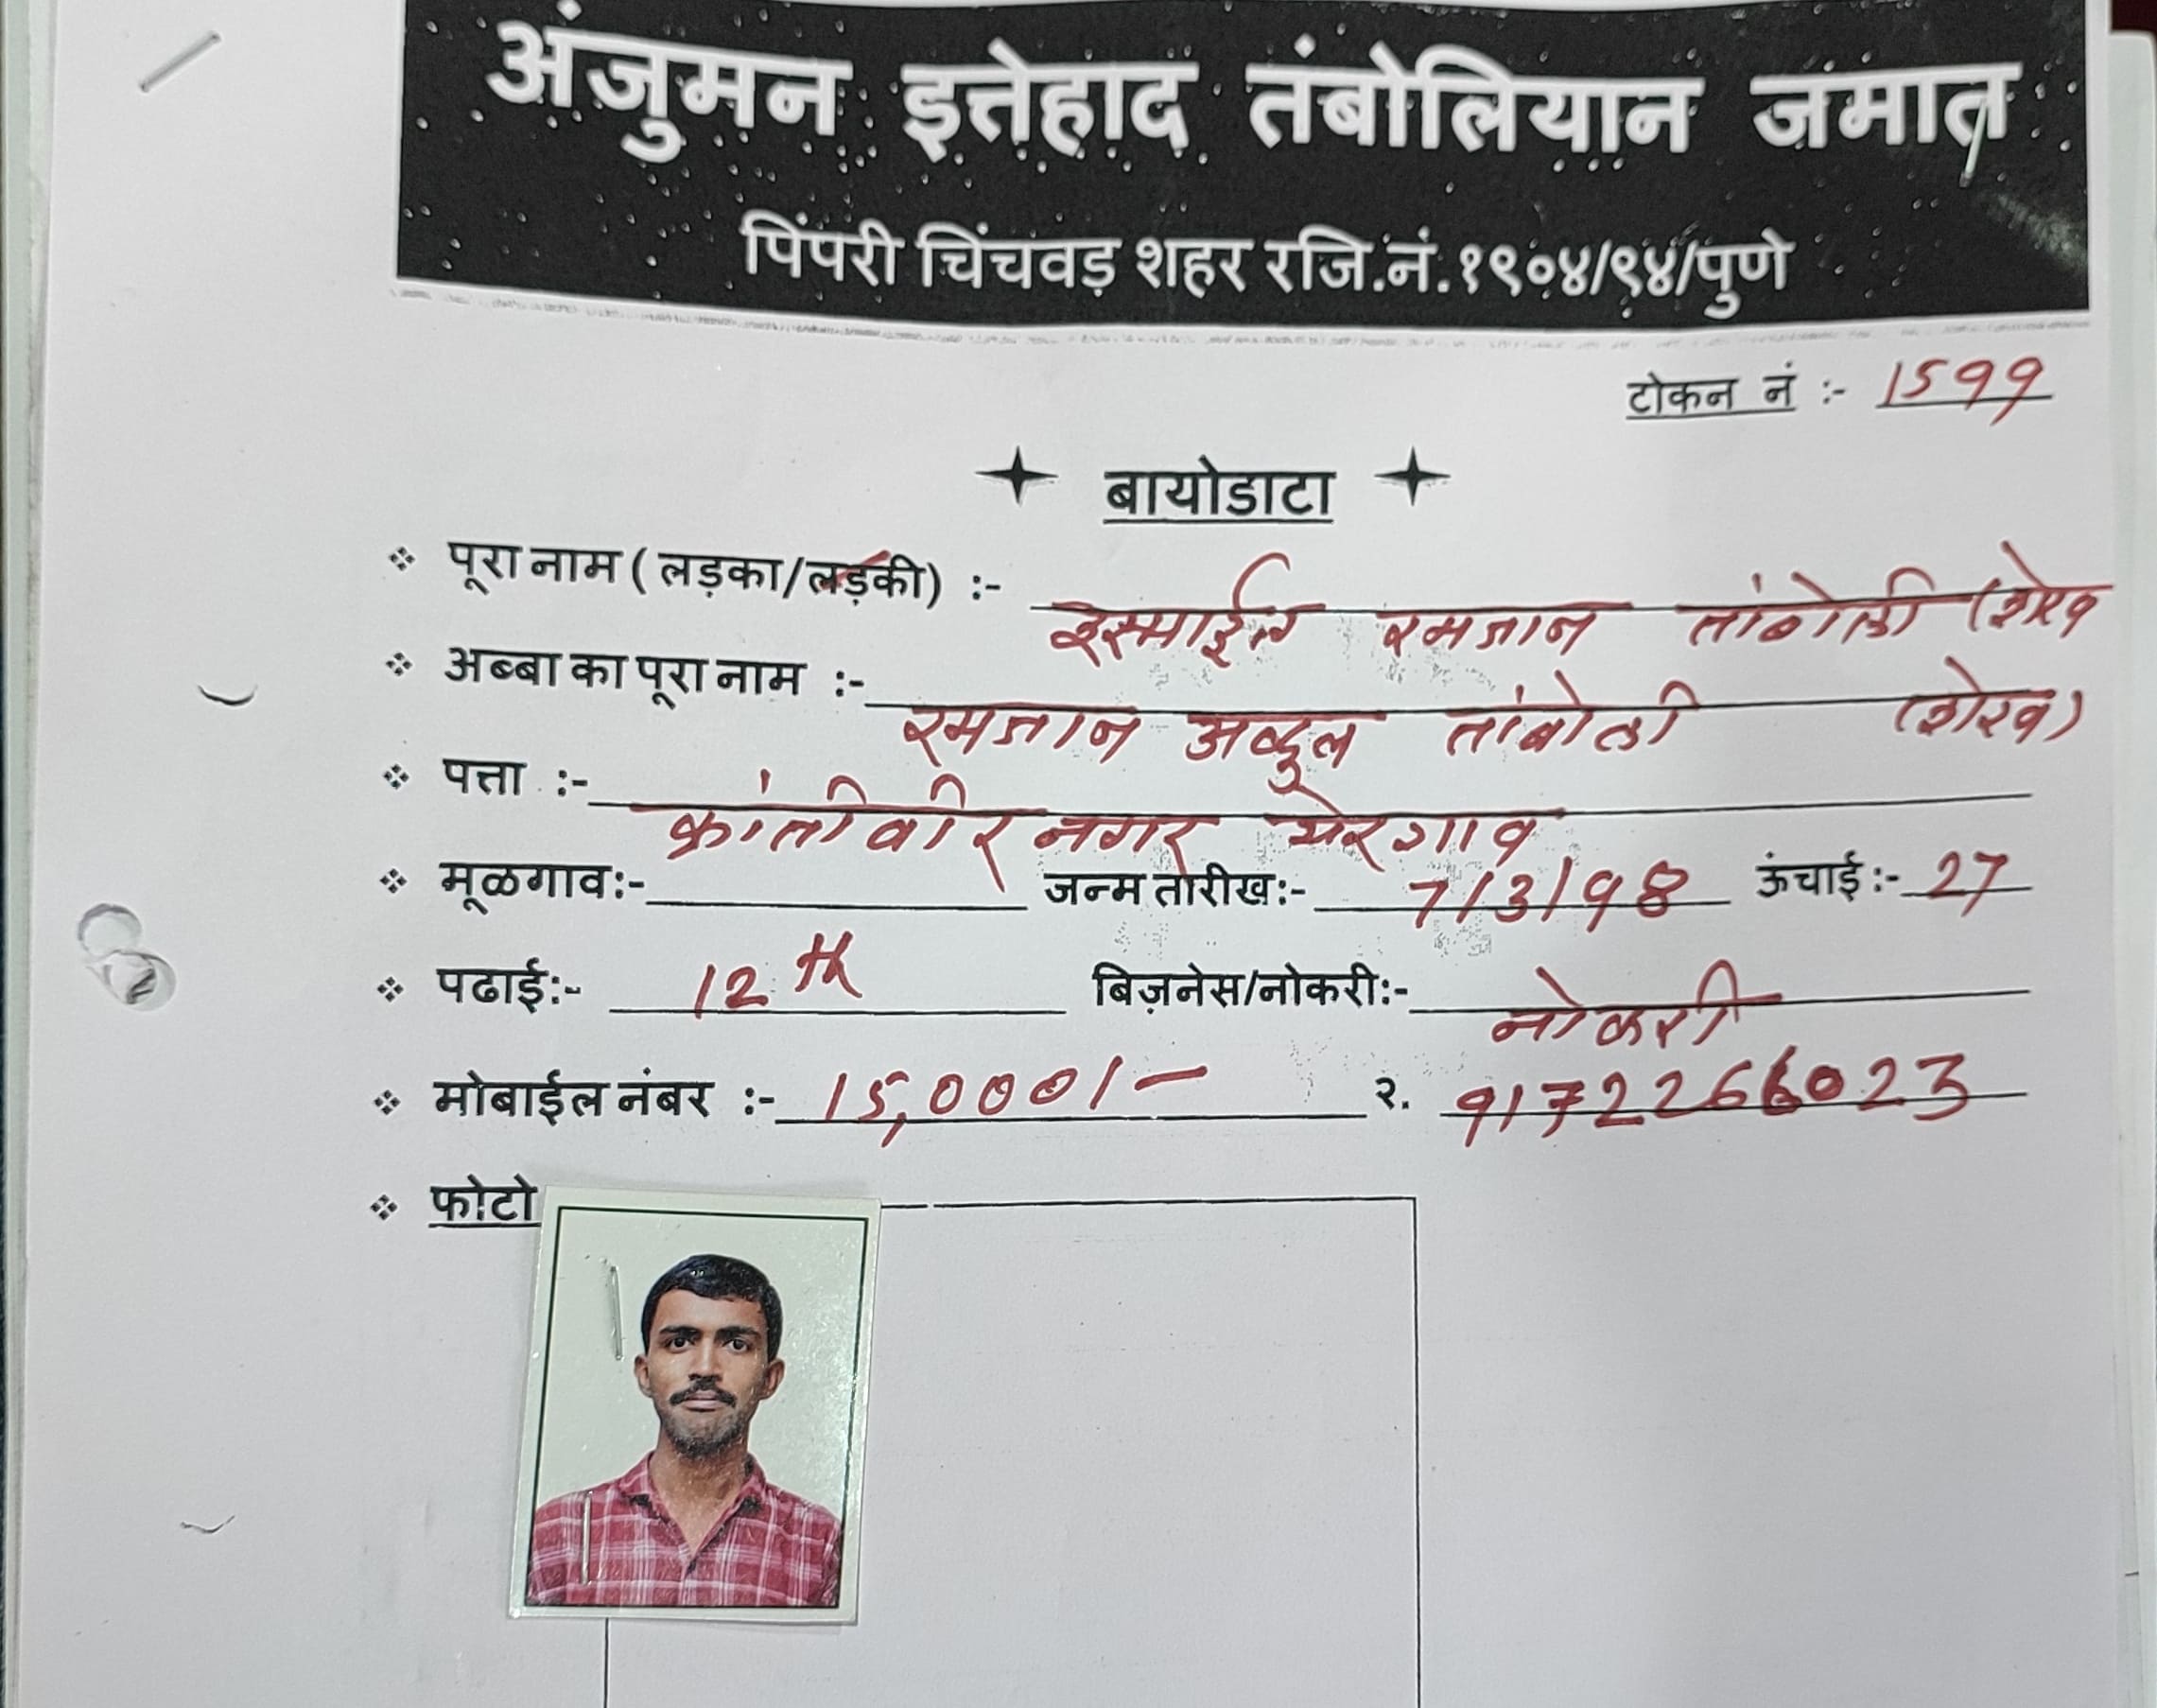 अंजुमन इत्तेहाद तंबोलियान जमात
पिंपरी चिंचवड़ शहर रजि.नं.१९०४/९४/पुणे
टोकन नं :- 1599
बायोडाटा
पूरा नाम ( लड़का/लड़की) :- इस्माईल रमजान तांबोळी (शेख
अब्बा का पूरा नाम :- रमजान अब्दुल तांबोळी (शेख)
पत्ता :- क्रांतीवीर नगर थेरगाव
मूळगाव:- जन्म तारीख:- 7/3/98 ऊंचाई:- 27
पढाई:- 12th बिज़नेस/नोकरी:- नोकरी
मोबाईल नंबर :- 15,000/- २. 9172266023
फोटो